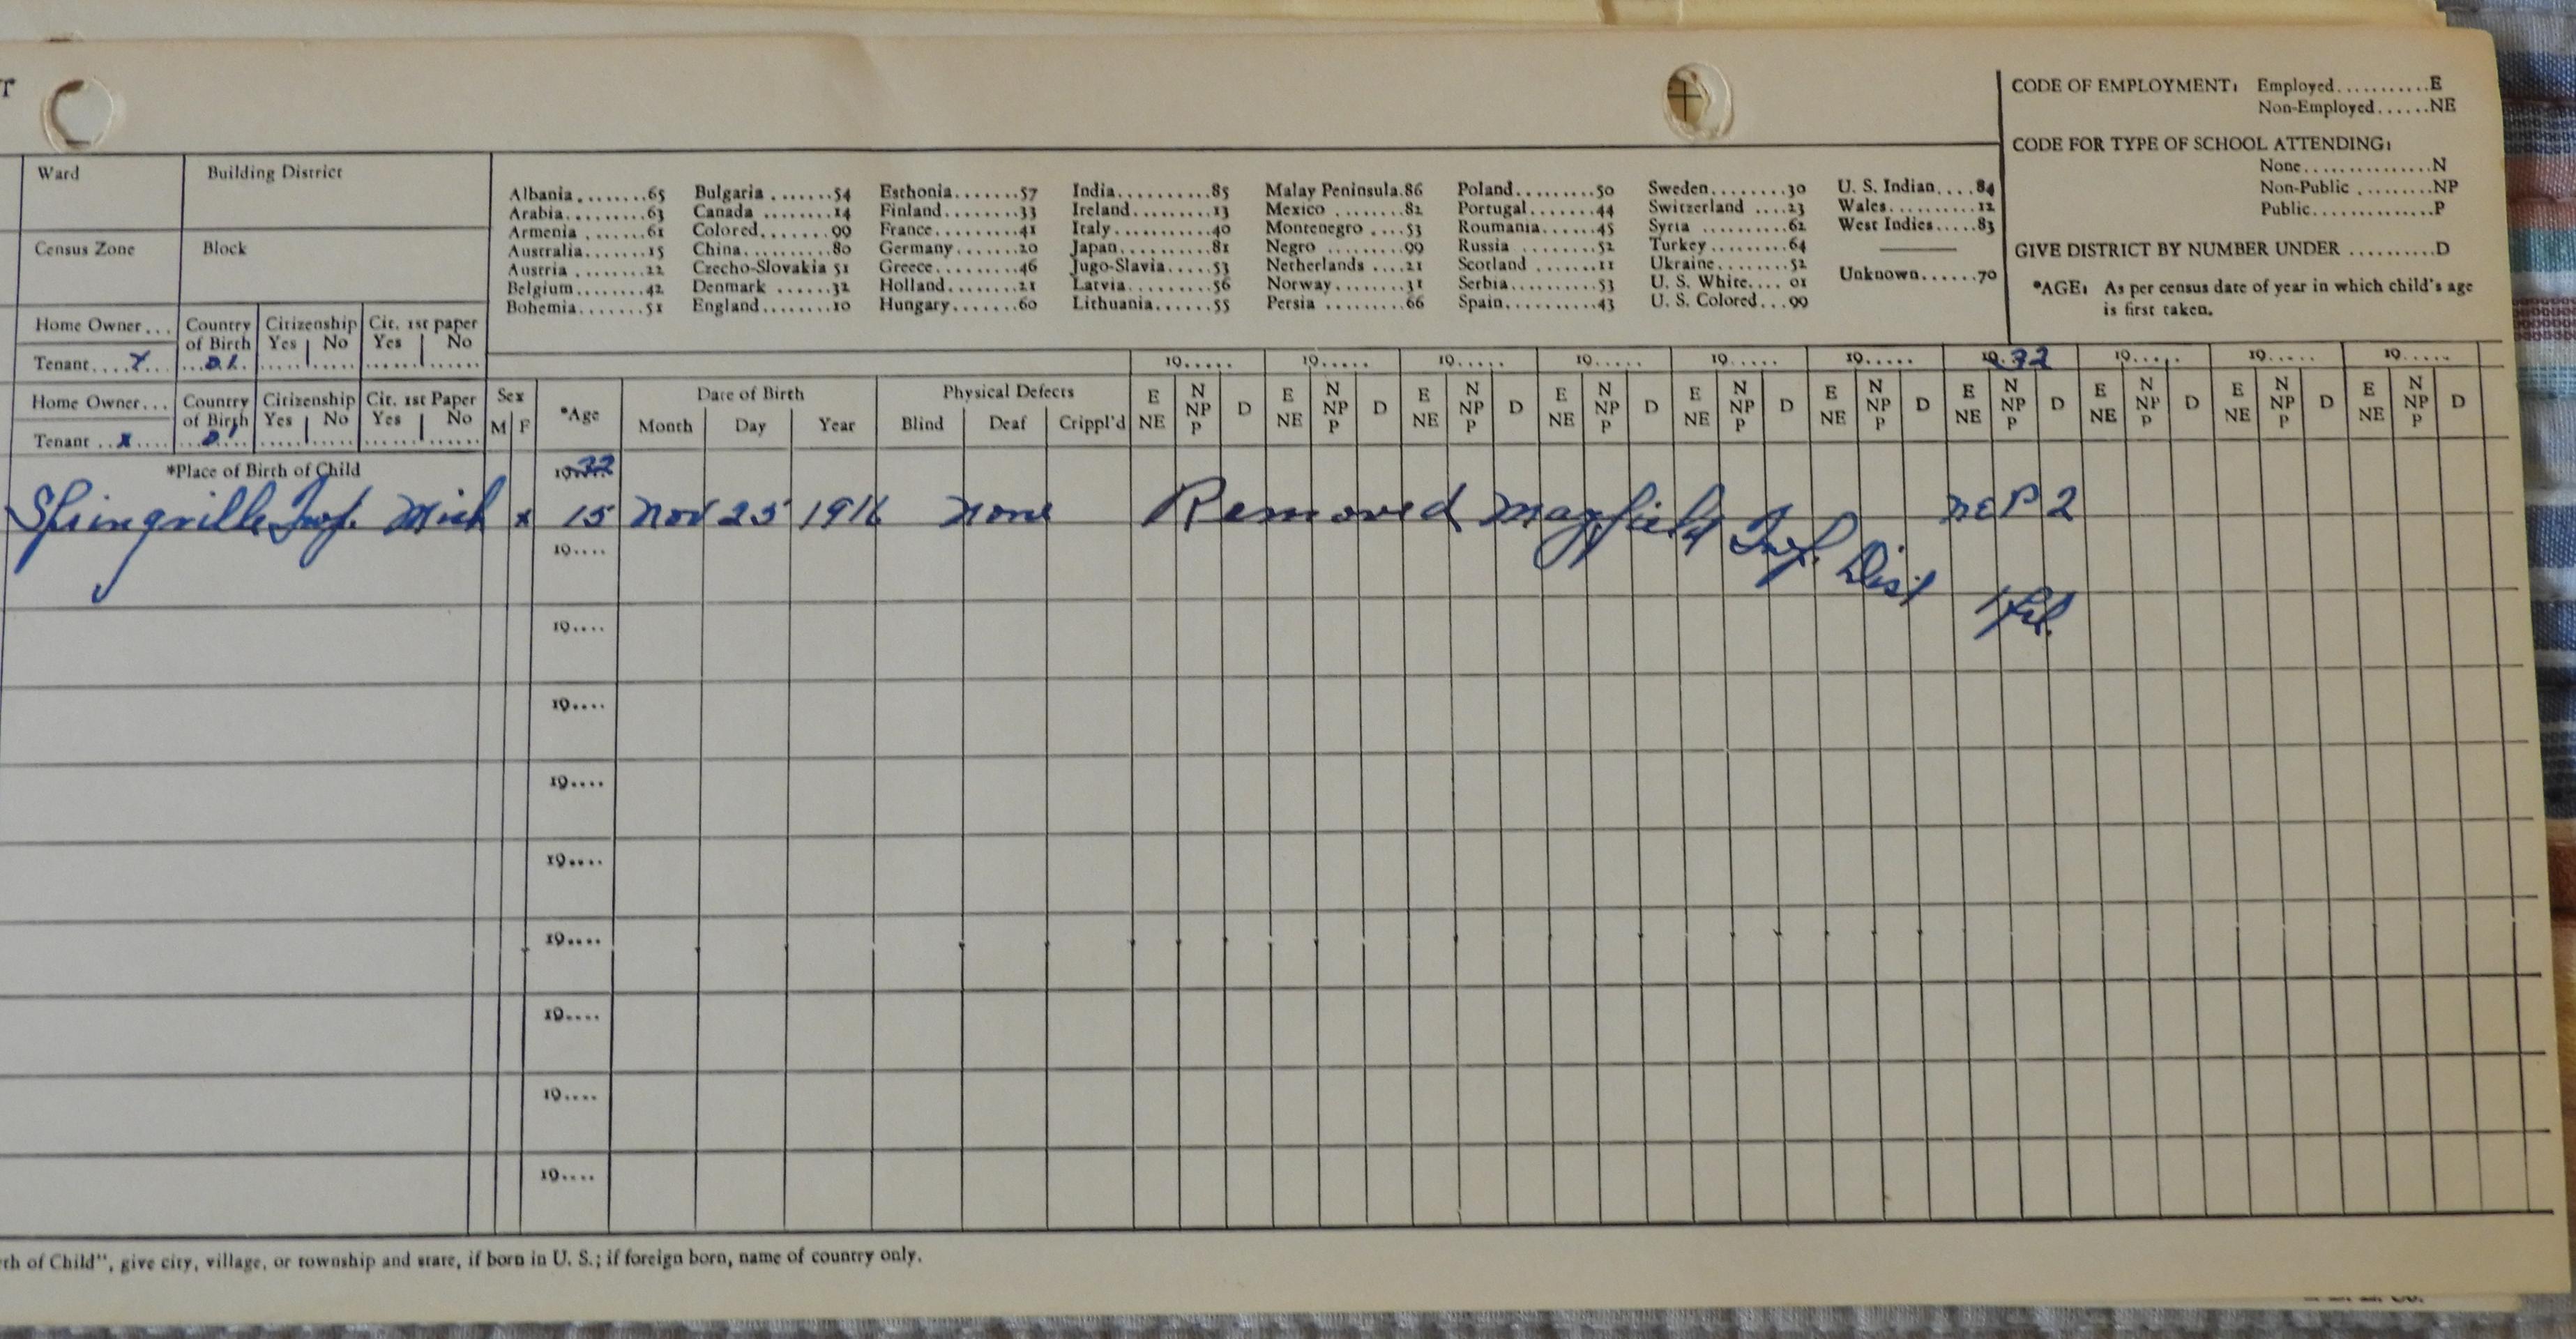 CODE OF EMPLOYMENT: Employed...........E
Non-Employed......NE
CODE FOR TYPE OF SCHOOL ATTENDING:
None...............N
Non-Public .........NP
Public..............P
GIVE DISTRICT BY NUMBER UNDER ..........D
*AGE: As per census date of year in which child's age
is first taken.
Ward Building District
Census Zone Block
Albania........65 Bulgaria.......54 Esthonia.......57 India..........85 Malay Peninsula.86 Poland.........50 Sweden........30 U. S. Indian....84
Arabia.........63 Canada ........14 Finland........33 Ireland........13 Mexico ........82 Portugal.......44 Switzerland ....23 Wales..........12
Armenia .......61 Colored........99 France.........41 Italy..........40 Montenegro ....53 Roumania.......45 Syria .........62 West Indies.....83
Australia......15 China..........80 Germany........20 Japan..........81 Negro .........99 Russia ........52 Turkey ........64
Austria ........22 Czecho-Slovakia 51 Greece.........46 Jugo-Slavia.....53 Netherlands ....21 Scotland .......11 Ukraine........52 Unknown......70
Belgium........42 Denmark ......32 Holland........21 Latvia.........56 Norway........31 Serbia.........53 U. S. White.... 01
Bohemia.......51 England........10 Hungary.......60 Lithuania......55 Persia .........66 Spain..........43 U. S. Colored...99
Home Owner... Country of Birth Citizenship Yes No Cit. 1st paper Yes No
Tenant....X...
19..... 19..... 19..... 19..... 19..... 19..... 19.32 19..... 19..... 19.....
Home Owner... Country of Birth Citizenship Yes No Cit. 1st Paper Yes No
Tenant ..x....
Sex *Age Date of Birth Physical Defects
M F Month Day Year Blind Deaf Crippl'd
E NE N NP P D E NE N NP P D E NE N NP P D E NE N NP P D E NE N NP P D E NE N NP P D E NE N NP P D E NE N NP P D E NE N NP P D E NE N NP P D
*Place of Birth of Child 19.32
Springville Twp. Mich x 15 Nov 25 1916 none Removed Mayfield Twp. Dist 1 frl. NE P 2
19....
19....
19....
19....
19....
19....
19....
19....
19....
rth of Child", give city, village, or township and state, if born in U. S.; if foreign born, name of country only.